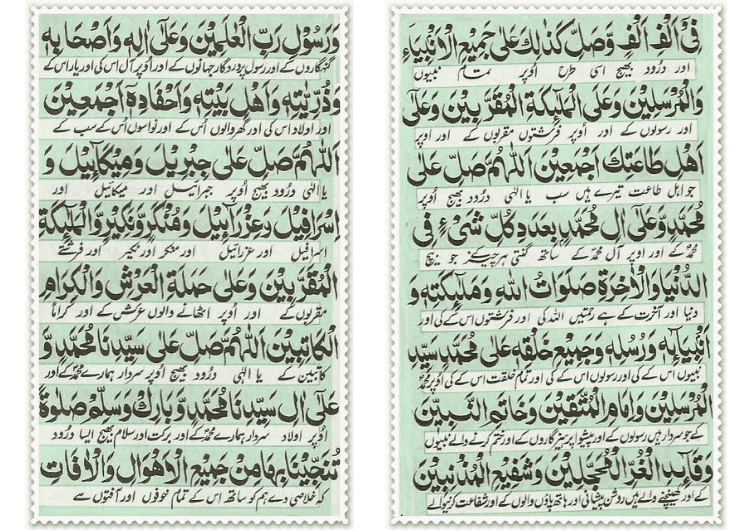 فِیْ اَلْفِ اَلْفٍ وَّصَلِّ کَذٰلِکَ عَلٰی جَمِیْعِ الْاَنْبِیَآءِ
اور درود بھیج اسی طرح اُوپر تمام نبیوں
وَالْمُرْسَلِیْنَ وَعَلَی الْمَلٰٓئِکَةِ الْمُقَرَّبِیْنَ وَعَلٰٓی
اور رسولوں کے اور اُوپر فرشتوں مقربوں کے اور اُوپر
اَھْلِ طَاعَتِکَ اَجْمَعِیْنَ اَللّٰھُمَّ صَلِّ عَلٰی
جو اہل طاعت تیرے ہیں سب یا الٰہی درود بھیج اُوپر
مُحَمَّدٍ وَّعَلٰٓی اٰلِ مُحَمَّدٍ بِعَدَدِ کُلِّ شَیْءٍ فِی
محمدؐ کے اور اوپر آل محمدؐ کے ساتھ گنتی ہر چیز کے جو بیچ
الدُّنْیَا وَالْاٰخِرَةِ صَلَوَاتُ اللّٰهِ وَمَلٰٓئِکَتِهٖ وَ
دنیا اور آخرت کے ہے رحمتیں اللہ کی اور فرشتوں اس کے کی اور
اَنْبِیَآئِهٖ وَرُسُلِهٖ وَجَمِیْعِ خَلْقِهٖ عَلٰی مُحَمَّدٍ سَیِّدِ
نبیوں اس کے کی اور رسولوں اس کے کی اور تمام خلقت اس کے کی اُوپر محمدؐ
الْمُرْسَلِیْنَ وَاِمَامِ الْمُتَّقِیْنَ وَخَاتَمِ النَّبِیّٖنَ
کے جو سردار ہیں رسولوں کے اور پیشوا پرہیزگاروں کے اور ختم کرنے والے نبیوں
وَقَآئِدِ الْغُرِّ الْمُحَجَّلِیْنَ وَشَفِیْعِ الْمُذْنِبِیْنَ
کے اور کھینچنے والے ہیں روشن پیشانی اور ہاتھ پاؤں والوں کے اور شفاعت کرنیوالے
وَرَسُوْلِ رَبِّ الْعٰلَمِیْنَ وَعَلٰٓی اٰلِهٖ وَاَصْحَابِهٖ
گنہگاروں کے اور رسول پروردگار جہانوں کے اور اُوپر آل اس کی اور یاراں اس کے
وَذُرِّیَّتِهٖ وَاَھْلِ بَیْتِهٖ وَاَحْفَادِهٖٓ اَجْمَعِیْنَ
اور اولاد اس کی اور گھر والوں اُس کے اور نواسوں اُس کے سب کے
اَللّٰھُمَّ صَلِّ عَلٰی جِبْرِیْلَ وَمِیْکَآئِیْلَ وَ
یا الٰہی درود بھیج اُوپر جبرائیل اور میکائیل اور
اِسْرَافِیْلَ وَعِزْرَآئِیْلَ وَمُنْکَرٍ وَّنَکِیْرٍ وَّالْمَلٰٓئِکَةِ
اسرافیل اور عزرائیل اور منکر اور نکیر اور فرشتے
الْمُقَرَّبِیْنَ وَعَلٰی حَمَلَةِ الْعَرْشِ وَالْکِرَامِ
مقربوں کے اور اُوپر اٹھانے والوں عرش کے اور کراماً
الْکَاتِبِیْنَ اَللّٰھُمَّ صَلِّ عَلٰی سَیِّدِنَا مُحَمَّدٍ وَّ
کاتبین کے یا الٰہی درود بھیج اُوپر سردار ہمارے محمدؐ کے اور
عَلٰٓی اٰلِ سَیِّدِنَا مُحَمَّدٍ وَّبَارِکْ وَسَلِّمْ صَلٰوةً
اُوپر اولاد سردار ہمارے محمدؐ کے اور برکت اور سلام بھیج ایسا درود
تُنَجِّیْنَا بِھَا مِنْ جَمِیْعِ الْاَھْوَالِ وَالْاٰفَاتِ
کہ خلاصی دے ہم کو ساتھ اس کے تمام خوفوں اور آفتوں سے